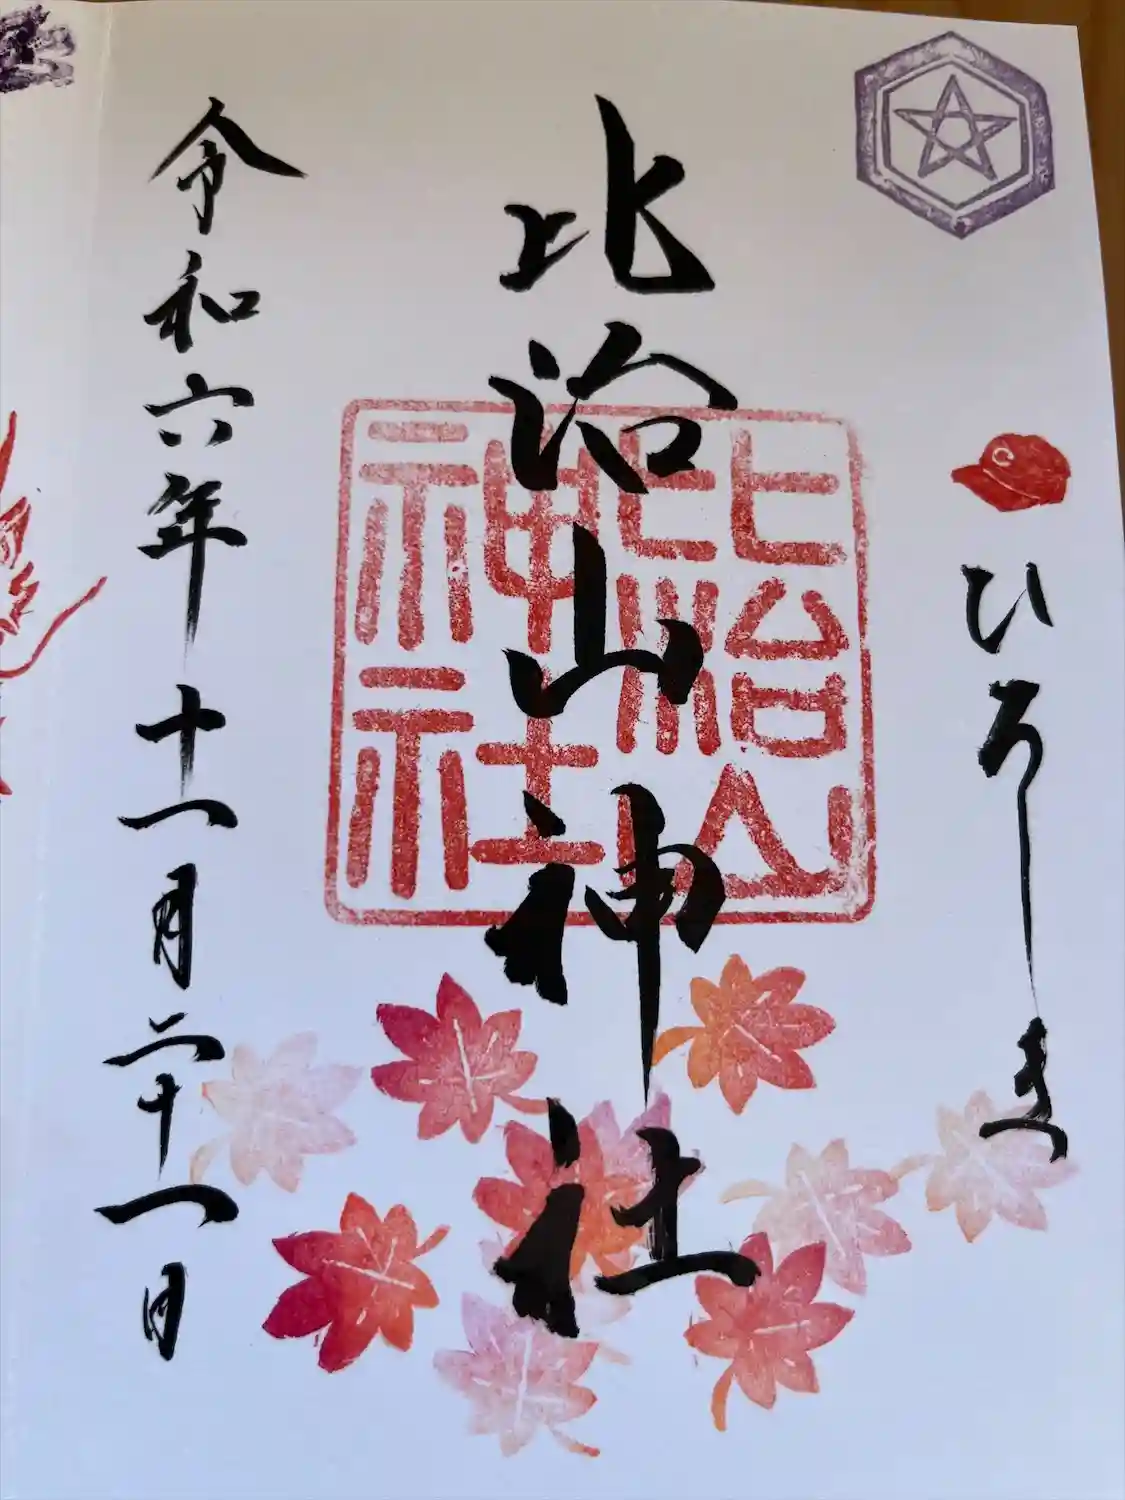 C
ひろしま
比治山神社
比治山
神社
令和六年十一月二十一日